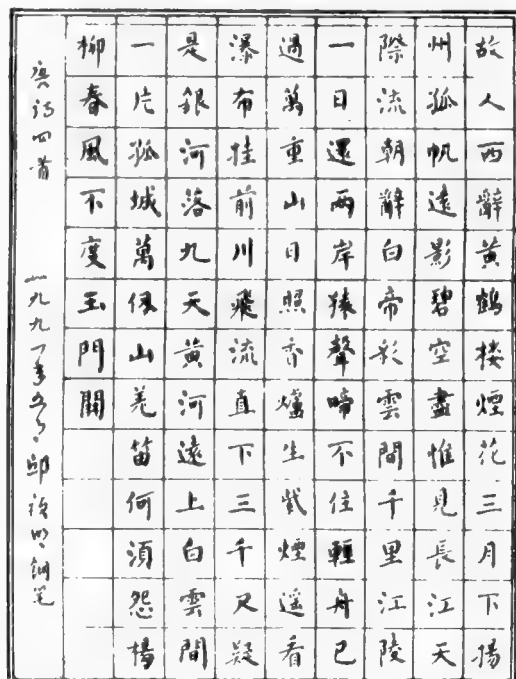 故人西辭黃鶴楼煙花三月下揚
州孤帆遠影碧空盡惟見長江天
際流朝辭白帝彩雲間千里江陵
一日還兩岸猿聲啼不住輕舟已
過萬重山日照香爐生紫煙遥看
瀑布挂前川飛流直下三千尺疑
是銀河落九天黃河遠上白雲間
一片孤城萬仞山羌笛何須怨楊
柳春風不度玉門關
唐诗四首
一九九一年五月邱 明钢笔